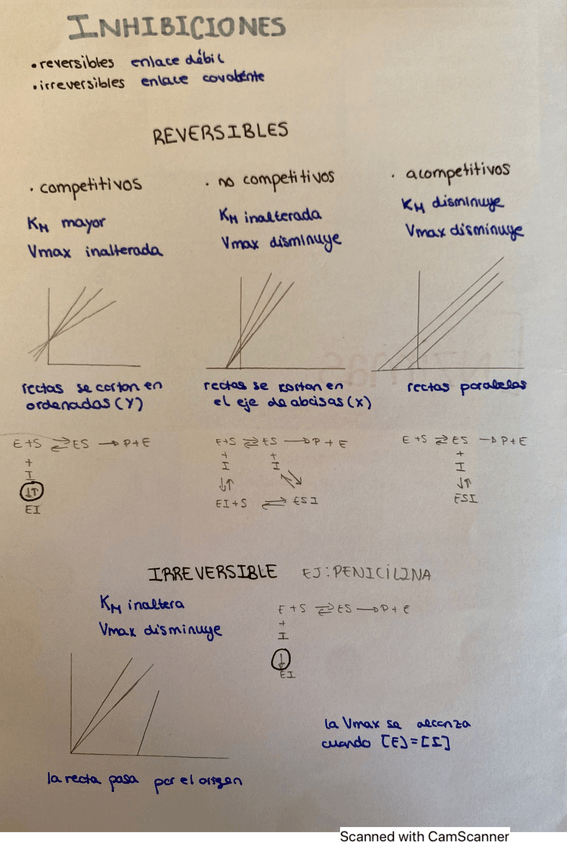 INHIBICIONES
• reversibles enlace débil
• irreversibles enlace covalente
REVERSIBLES
· competitivos
KM mayor
Vmax inalterada
rectas se cortan en
ordenadas (Y)
E+S ⇌ ES → P+E
+
I
↓↑
EI
· no competitivos
KM inalterada
Vmax disminuye
rectas se cortan en
el eje de abcisas (x)
E+S ⇌ ES → P+E
+ +
I I
↓↑
EI+S ⇌ ESI
· acompetitivos
KM disminuye
Vmax disminuye
rectas paralelas
E+S ⇌ ES → P+E
+
I
↓↑
ESI
IRREVERSIBLE EJ: PENICILINA
KM inaltera
Vmax disminuye
la recta pasa por el origen
E+S ⇌ ES → P+E
+
I
↓
EI
la Vmax se alcanza
cuando [E]=[I]
Scanned with CamScanner